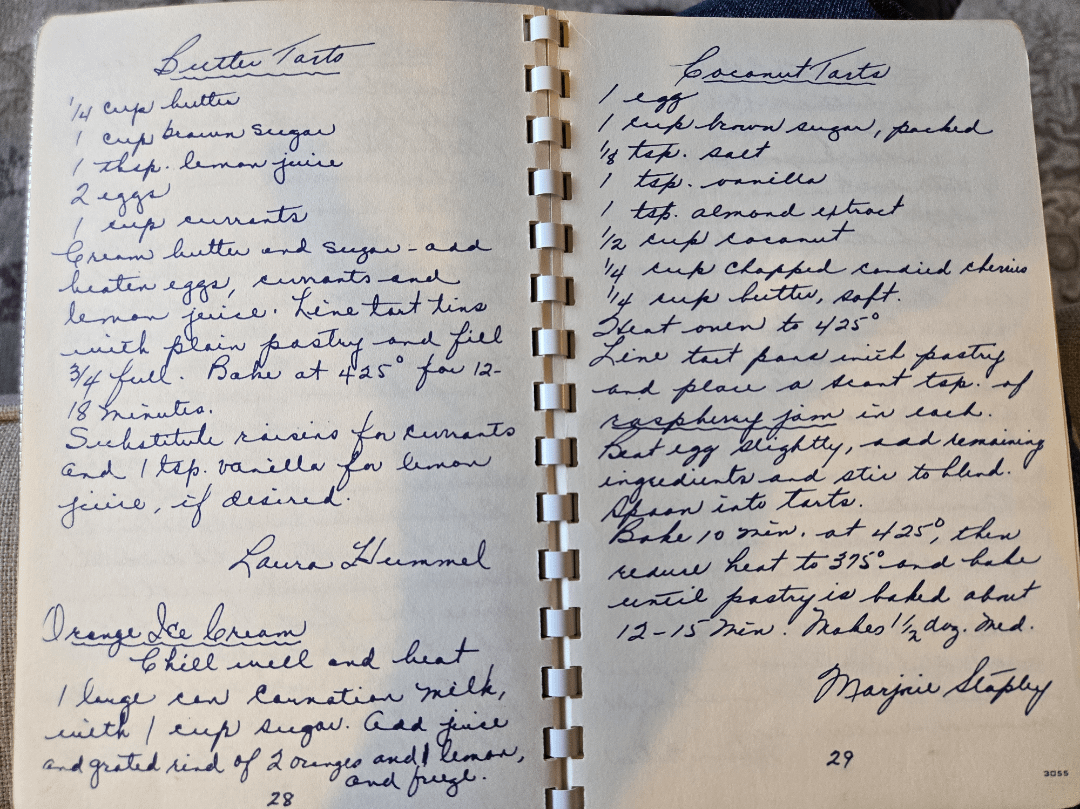 Butter Tarts
1/4 cup butter
1 cup brown sugar
1 tbsp. lemon juice
2 eggs
1 cup currants
Cream butter and sugar - add
beaten eggs, currants and
lemon juice. Line tart tins
with plain pastry and fill
3/4 full. Bake at 425° for 12-
18 minutes.
Substitute raisins for currants
and 1 tsp. vanilla for lemon
juice, if desired.
Laura Hummel
Orange Ice Cream
Chill well and beat
1 large can Carnation Milk,
with 1 cup sugar. Add juice
and grated rind of 2 oranges and 1 lemon,
and freeze.
28
Coconut Tarts
1 egg
1 cup brown sugar, packed
1/8 tsp. salt
1 tsp. vanilla
1 tsp. almond extract
1/2 cup coconut
1/4 cup chopped candied cherries
1/4 cup butter, soft.
Heat oven to 425°
Line tart pans with pastry
and place a scant tsp. of
raspberry jam in each.
Beat egg slightly, add remaining
ingredients and stir to blend.
Spoon into tarts.
Bake 10 min. at 425°, then
reduce heat to 375° and bake
until pastry is baked about
12-15 Min. Makes 1 1/2 doz. Med.
Marjorie Stapley
29
3055